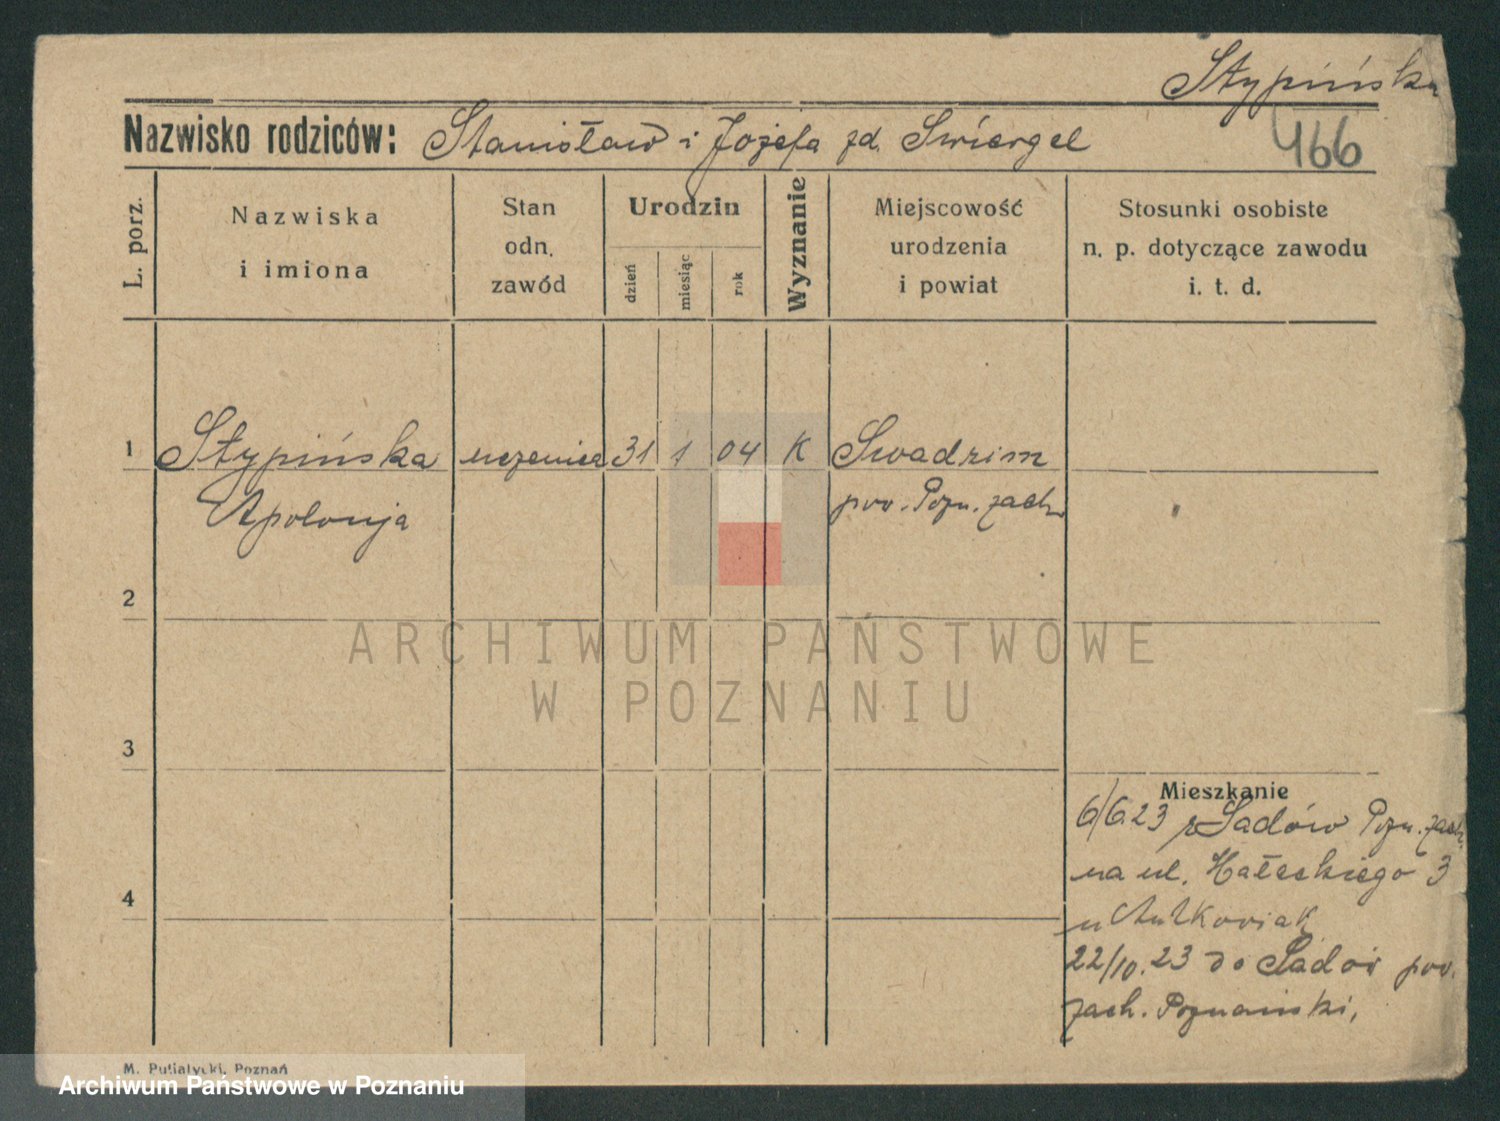 Stypińska
Nazwisko rodziców: Stanisław i Józefa zd. Swiergel
466
L. porz.
Nazwiska
i imiona
Stan
odn.
zawód
Urodzin
dzień
miesiąc
rok
Wyznanie
Miejscowość
urodzenia
i powiat
Stosunki osobiste
n. p. dotyczące zawodu
i. t. d.
1 Stypińska uczenica 31 1 04 K Swadzim
Apolonja pow. Pozn. zach.
2
3
4
Mieszkanie
6/6.23 z Sadów Pozn. zach.
na ul. Małeckiego 3
u
22/10.23 do Sadów pow.
zach. Poznański,
M. Putiatycki, Poznań
ARCHIWUM PAŃSTWOWE
W POZNANIU
Archiwum Państwowe w Poznaniu